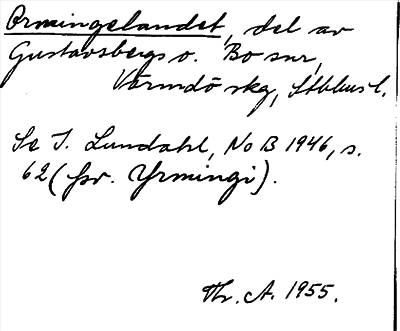 Ormingelandet, del av
Gustavsbergs o. Boo snr,
Värmdö skg, Sthlms l.
Se I. Lundahl, NoB 1946, s.
62 (fsv. Yrmingi).
Th. A. 1955.